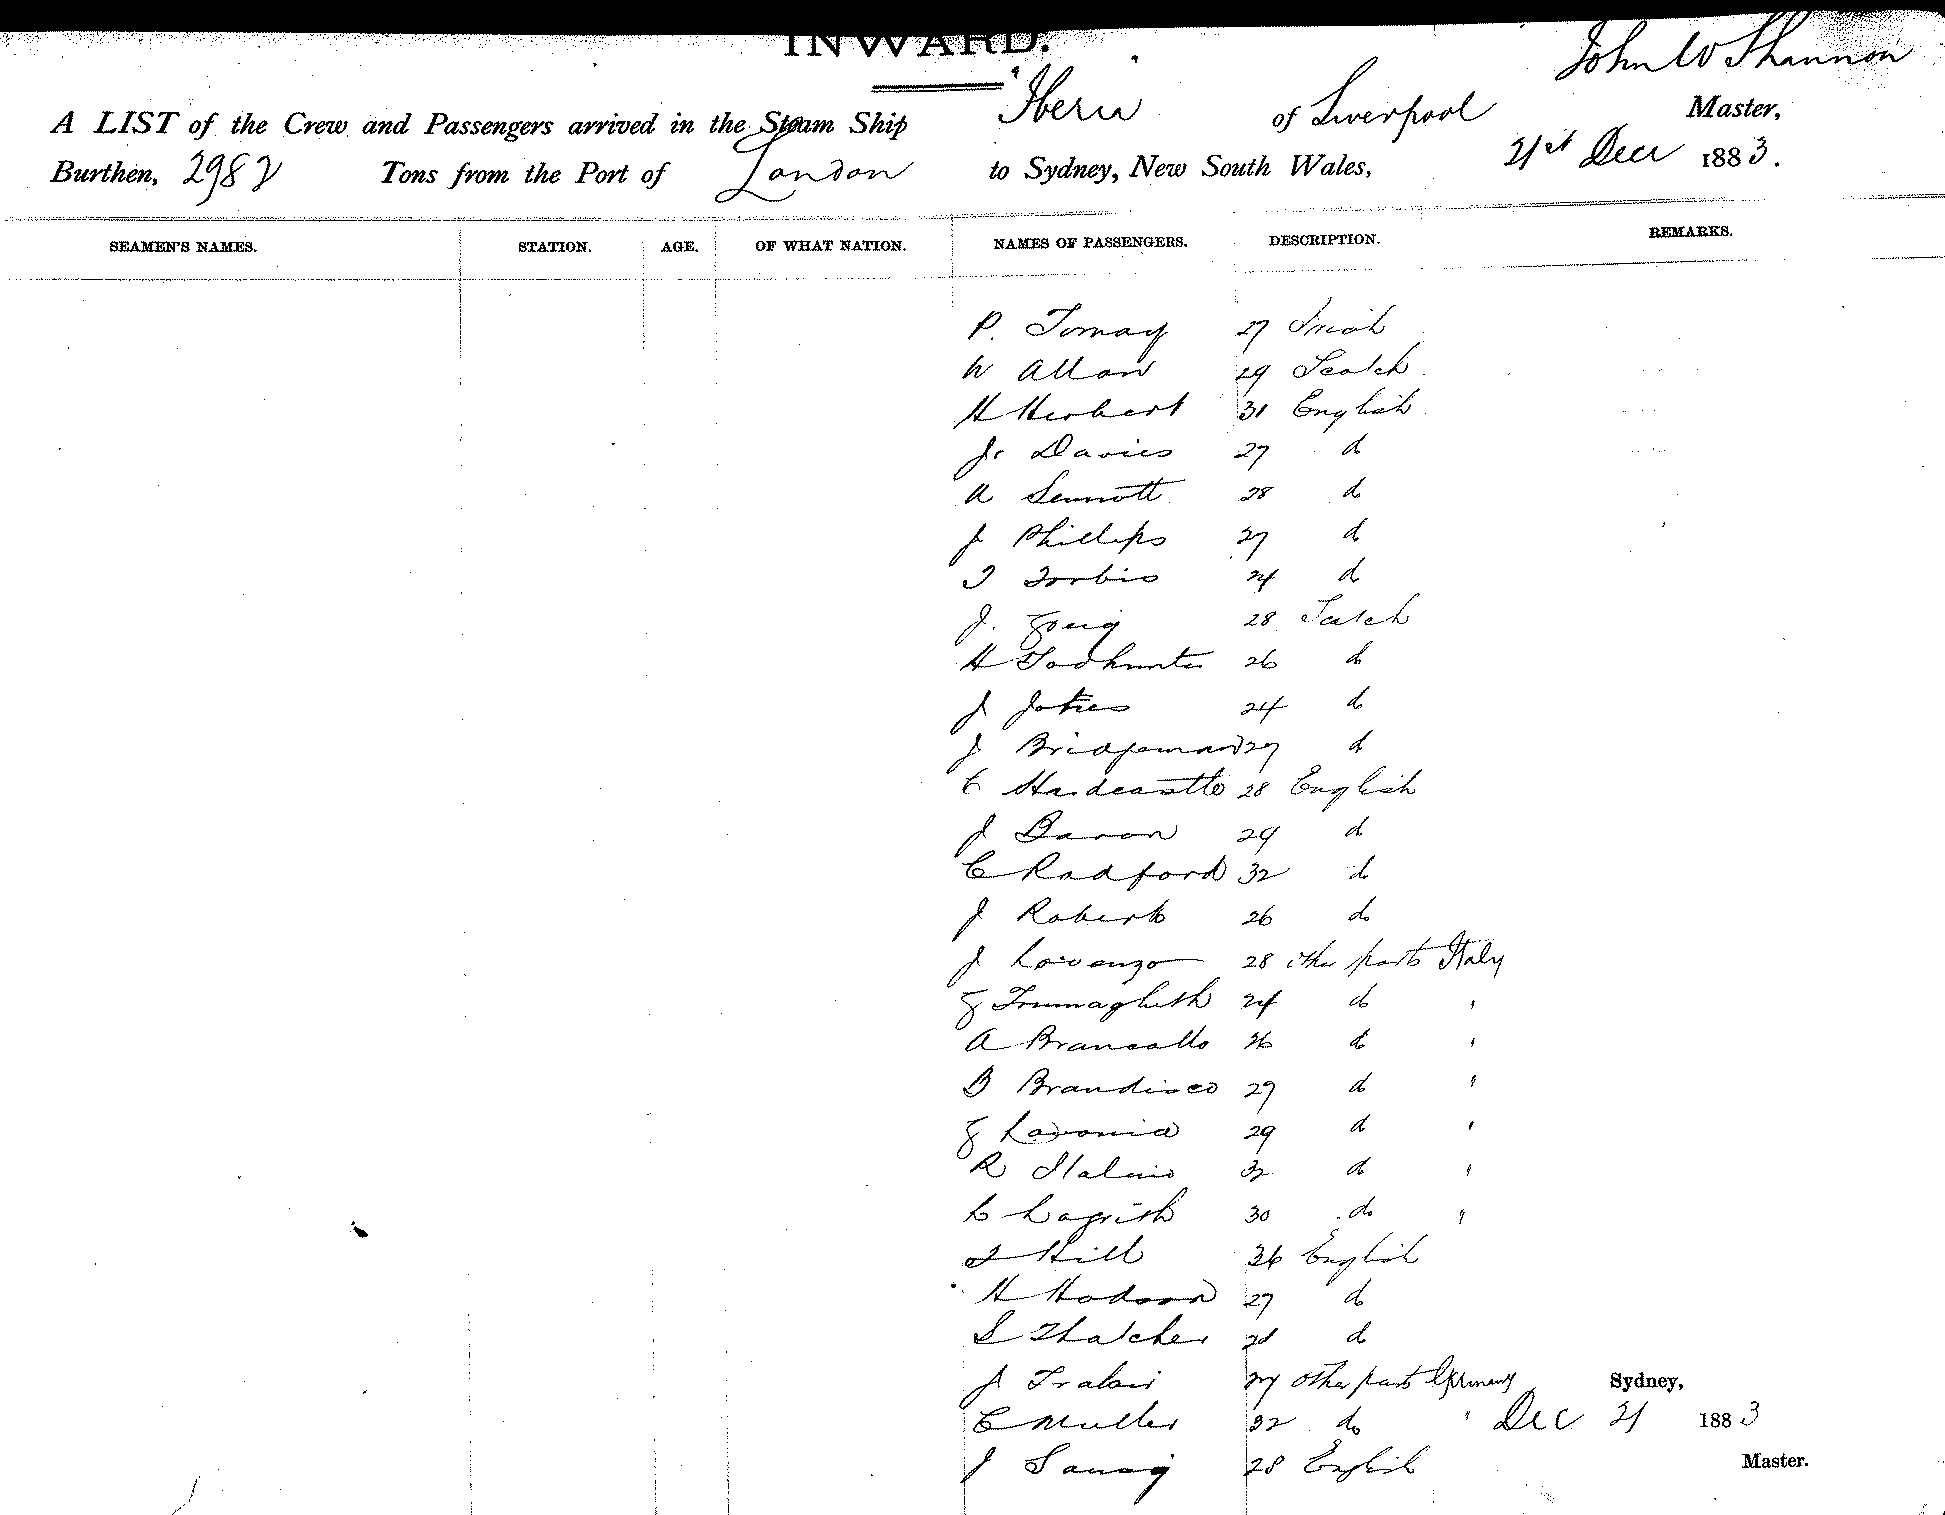 INWARD.
John W Shannon
A LIST of the Crew and Passengers arrived in the Steam Ship "Iberia" of Liverpool Master,
Burthen, 2982 Tons from the Port of London to Sydney, New South Wales, 21st Decr 1883.
SEAMEN'S NAMES. STATION. AGE. OF WHAT NATION. NAMES OF PASSENGERS. DESCRIPTION. REMARKS.
P. 27 Irish
W Allan 29 Scotch
H Herbert 31 English
J. Davies 27 do
A 28 do
J Phillips 27 do
T 24 do
J. 28 Scotch
H Todhunter 26 do
J 24 do
J Bridgeman 27 do
C Hardcastle 28 English
J Baron 29 do
C Radford 32 do
J Roberts 26 do
J Lorenzo 28 other parts Italy
24 do "
A 26 do "
B Brandisco 29 do "
29 do "
R 32 do "
L 30 do "
Hill 36 English
H Hodson 27 do
S Thatcher do
J other parts Germany Sydney,
C Muller 32 do " Dec 21 1883
J 28 English Master.